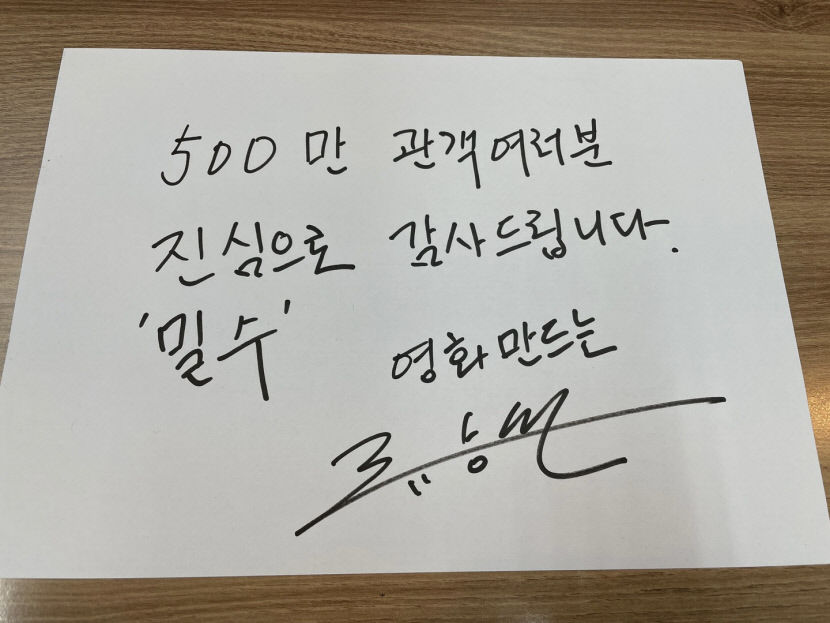 500만 관객여러분
진심으로 감사드립니다.
'밀수' 영화만드는
류승완